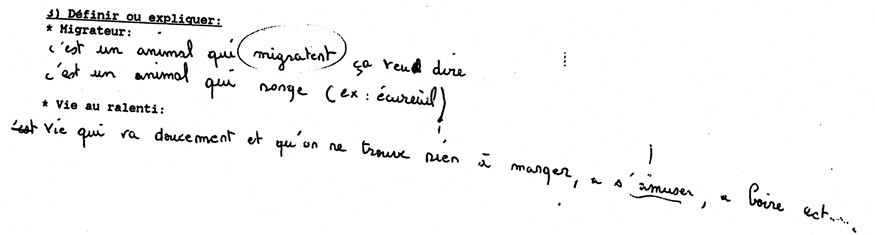 3) Définir ou expliquer:
* Migrateur:
c'est un animal qui migratent ça veut dire
c'est un animal qui ronge (ex : écureuil)
* Vie au ralenti:
c'est vie qui va doucement et qu'on ne trouve rien à manger, a s'amuser, a boire ect.....